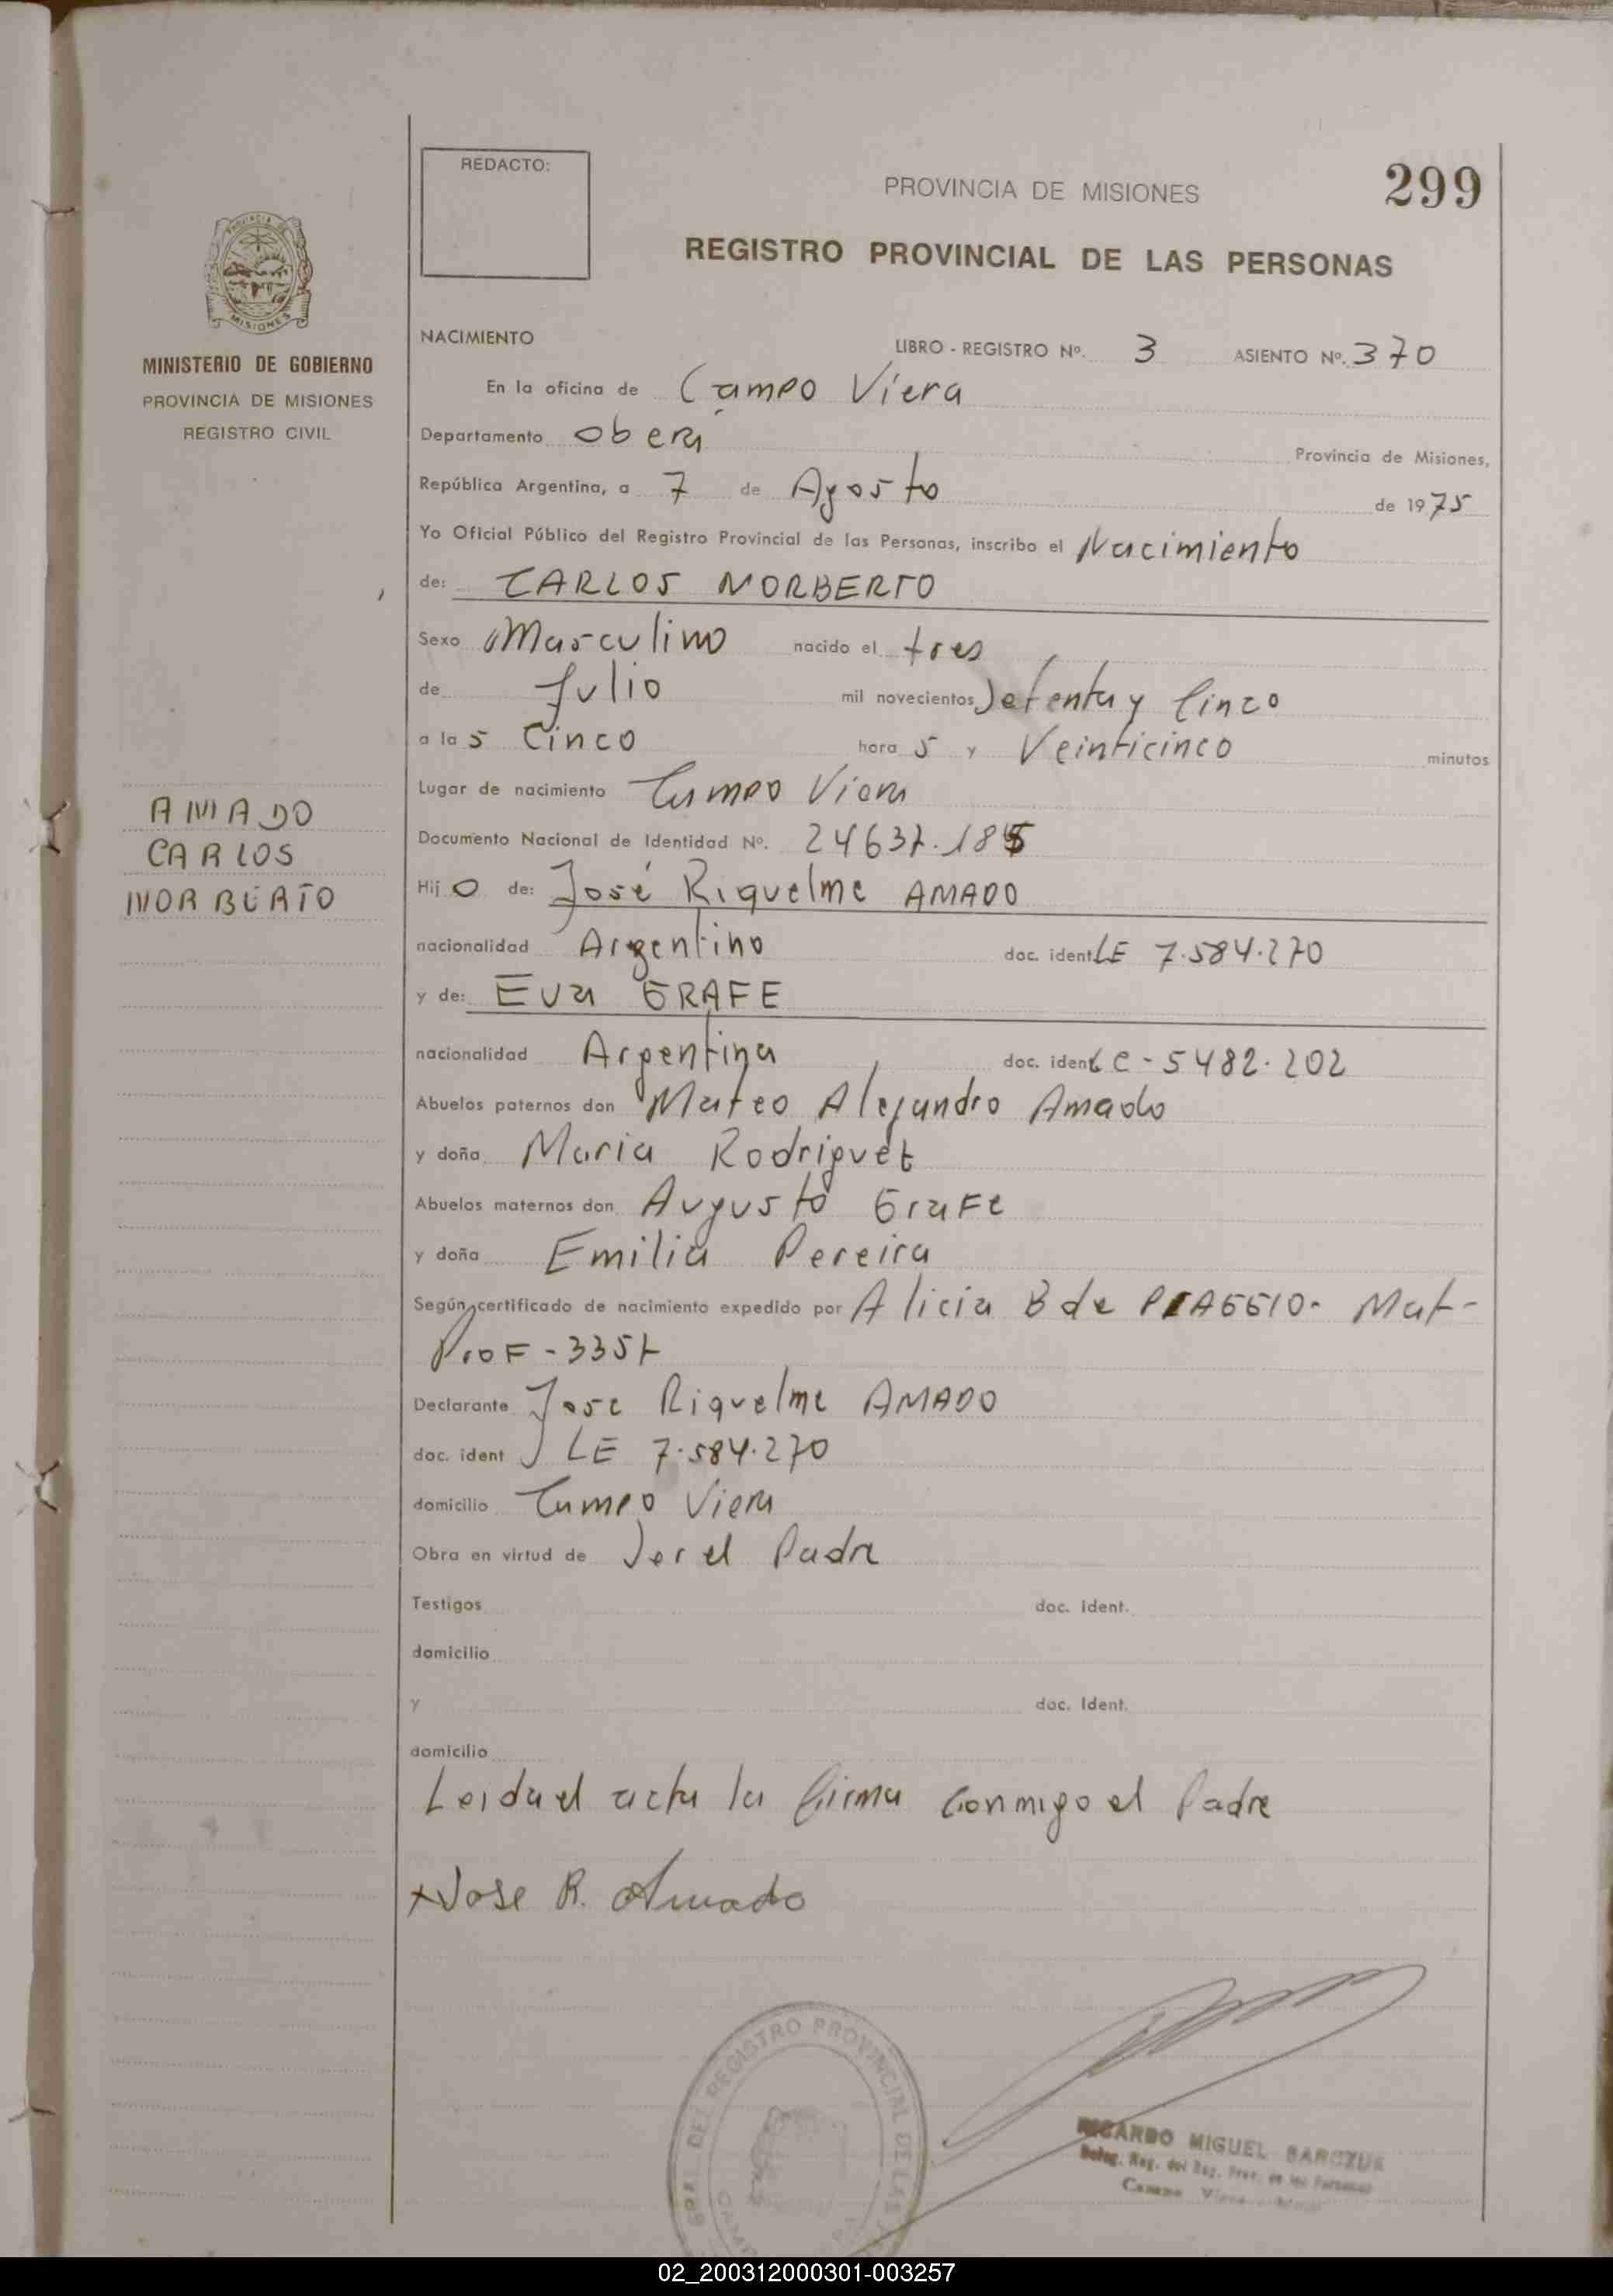 REDACTO:
PROVINCIA DE MISIONES
299
REGISTRO PROVINCIAL DE LAS PERSONAS
PROVINCIA
MISIONES
MINISTERIO DE GOBIERNO
PROVINCIA DE MISIONES
REGISTRO CIVIL
AMADO
CARLOS
NORBERTO
NACIMIENTO
LIBRO - REGISTRO Nº. 3 ASIENTO Nº. 370
En la oficina de Campo Viera
Departamento Oberá Provincia de Misiones,
República Argentina, a 7 de Agosto de 1975
Yo Oficial Público del Registro Provincial de las Personas, inscribo el Nacimiento
de: CARLOS NORBERTO
Sexo Masculino nacido el tres
de Julio mil novecientos Setenta y Cinco
a la s Cinco hora s y Veinticinco minutos
Lugar de nacimiento Campo Viera
Documento Nacional de Identidad Nº. 24637.185
Hij o de: José Riquelme AMADO
nacionalidad Argentino doc. ident LE 7.584.270
y de: Eva GRAFE
nacionalidad Argentina doc. ident LC - 5482.202
Abuelos paternos don Mateo Alejandro Amado
y doña Maria Rodriguez
Abuelos maternos don Augusto Grafe
y doña Emilia Pereira
Según certificado de nacimiento expedido por Alicia B de Mat-
Prof - 3357
Declarante Jose Riquelme AMADO
doc. ident LE 7.584.270
domicilio Campo Viera
Obra en virtud de Ser el Padre
Testigos doc. Ident.
domicilio
y doc. Ident.
domicilio
Leida el acta la firma conmigo el Padre
x Jose R. Amado
DEL REGISTRO PROVINCIAL DE LAS
RICARDO MIGUEL BARCZUK
Deleg. Reg. del Reg. Prov. de las Personas
Campo Viera
02_200312000301-003257